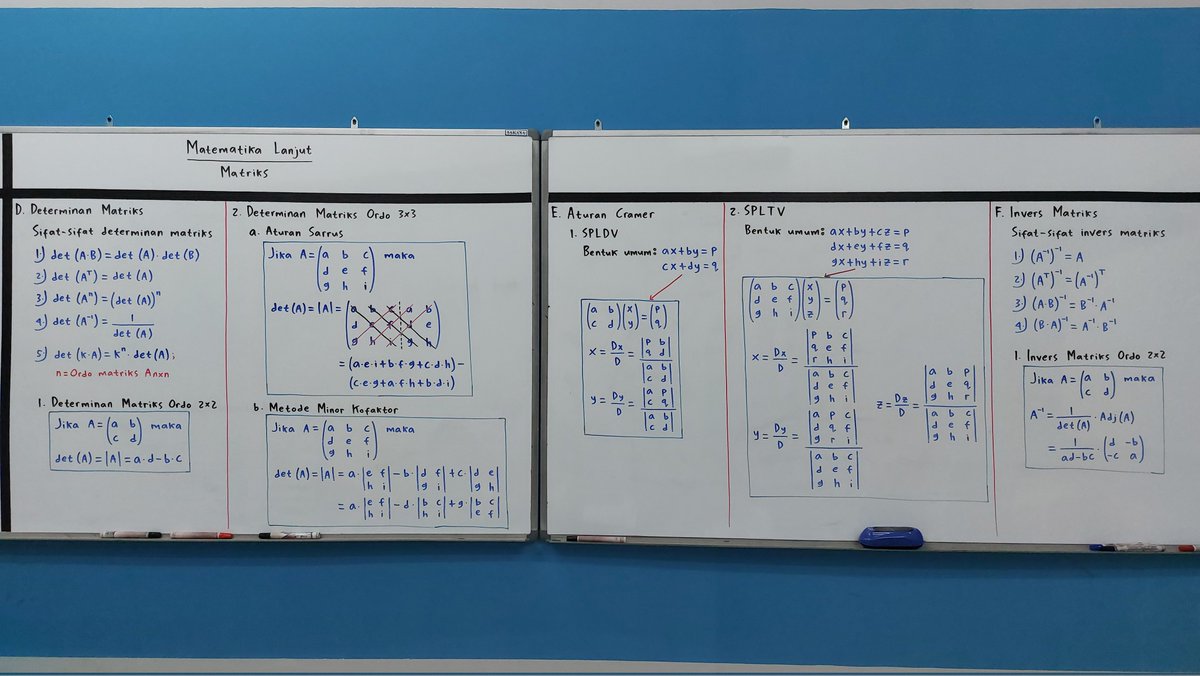 Matematika Lanjut
Matriks
D. Determinan Matriks
Sifat-sifat determinan matriks
1) det (A·B) = det (A) . det (B)
2) det (Aᵀ) = det (A)
3) det (Aⁿ) = (det (A))ⁿ
4) det (A⁻¹) = 1 / det (A)
5) det (k·A) = Kⁿ · det (A);
n = Ordo matriks Anxn
1. Determinan Matriks Ordo 2x2
Jika A = (a b maka
c d)
det (A) = |A| = a·d - b·c
2. Determinan Matriks Ordo 3x3
a. Aturan Sarrus
Jika A = (a b c maka
d e f
g h i)
det (A) = |A| = (a b c a b
d e f d e
g h i g h)
= (a·e·i + b·f·g + c·d·h) -
(c·e·g + a·f·h + b·d·i)
b. Metode Minor Kofaktor
Jika A = (a b c maka
d e f
g h i)
det (A) = |A| = a· |e f| - b· |d f| + c· |d e|
|h i| |g i| |g h|
= a· |e f| - d· |b c| + g· |b c|
|h i| |h i| |e f|
E. Aturan Cramer
1. SPLDV
Bentuk umum: ax + by = p
cx + dy = q
(a b) (x) = (p)
(c d) (y) (q)
x = Dx / D = |p b|
|q d|
|a b|
|c d|
y = Dy / D = |a p|
|c q|
|a b|
|c d|
2. SPLTV
Bentuk umum: ax + by + cz = p
dx + ey + fz = q
gx + hy + iz = r
(a b c) (x) (p)
(d e f) (y) = (q)
(g h i) (z) (r)
x = Dx / D = |p b c|
|q e f|
|r h i|
|a b c|
|d e f|
|g h i|
y = Dy / D = |a p c|
|d q f|
|g r i|
|a b c|
|d e f|
|g h i|
z = Dz / D = |a b p|
|d e q|
|g h r|
|a b c|
|d e f|
|g h i|
F. Invers Matriks
Sifat-sifat invers matriks
1) (A⁻¹)⁻¹ = A
2) (Aᵀ)⁻¹ = (A⁻¹)ᵀ
3) (A·B)⁻¹ = B⁻¹ · A⁻¹
4) (B·A)⁻¹ = A⁻¹ · B⁻¹
1. Invers Matriks Ordo 2x2
Jika A = (a b maka
c d)
A⁻¹ = 1 / det (A) · Adj (A)
= 1 / ad-bc · (d -b
-c a)